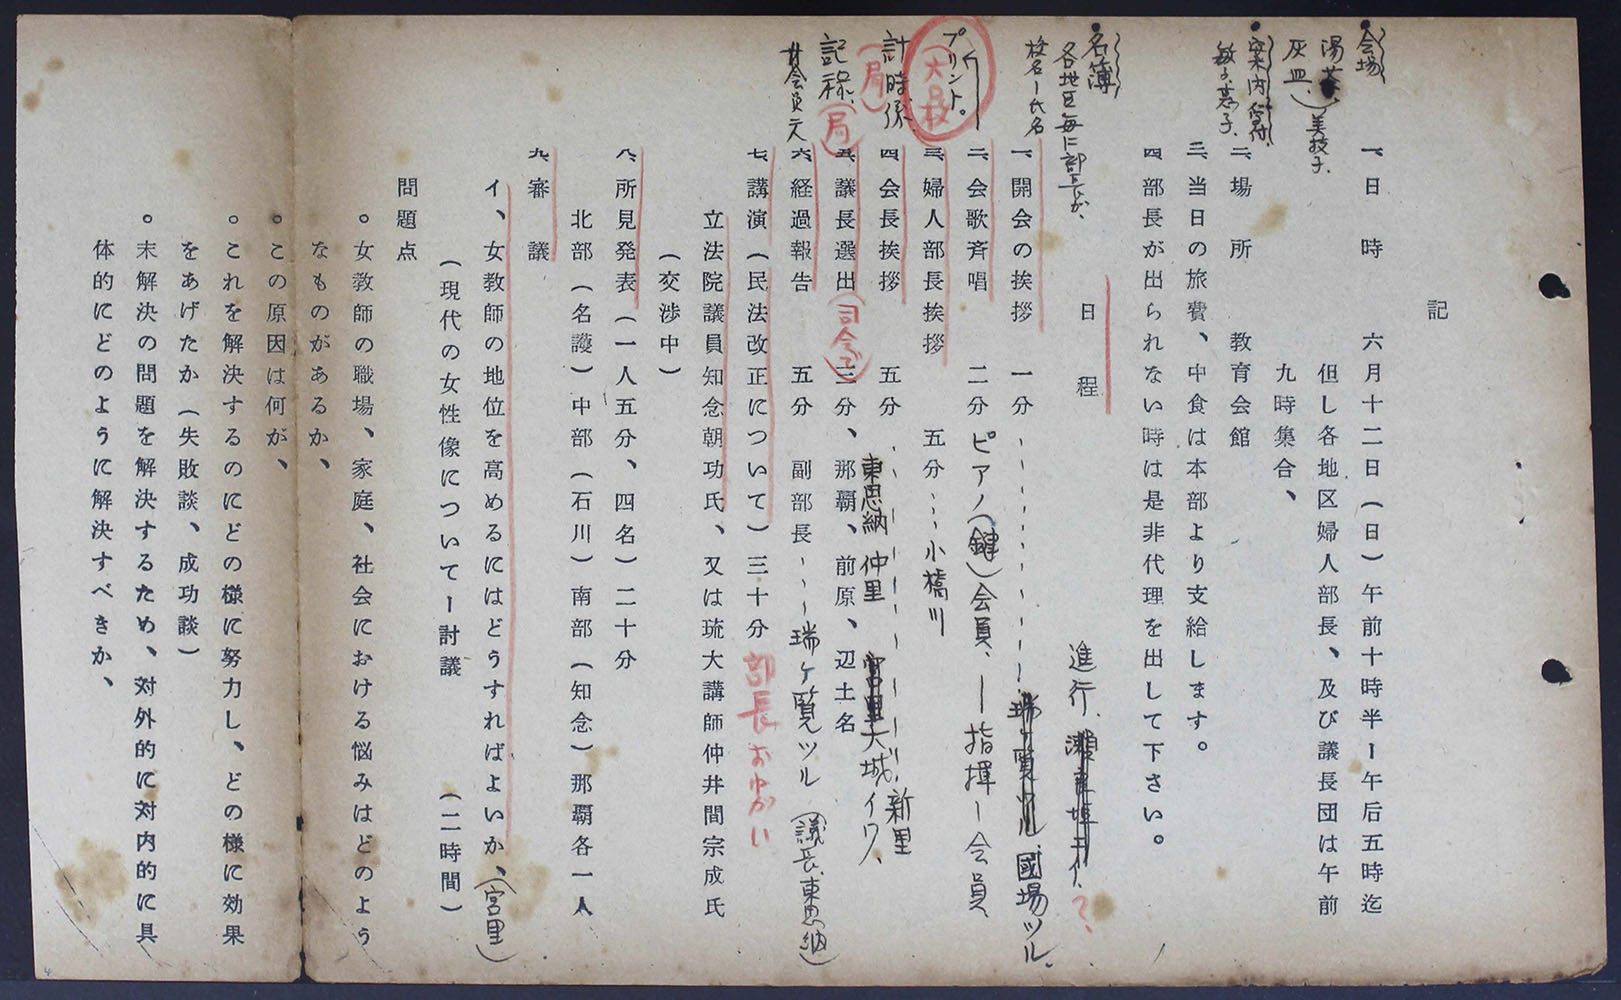 記
一、日時 六月十二日(日)午前十時半ー午后五時迄
但し各地区婦人部長、及び議長団は午前
九時集合、
二、場所 教育会館
三、当日の旅費、中食は本部より支給します。
四、部長が出られない時は是非代理を出して下さい。
会場
湯茶、
灰皿、)美技子、
案内、受付、
敏子、
名簿
各地区毎に部長が、
校名ー氏名
プリント。
(大呂校)
計時係
(局)
記録、(局)
廾会員元
日程
進行、 ?
一、開会の挨拶 一分 瑞ケ覧ツル 國場ツル、
二、会歌斉唱 二分 ピアノ(鍵)会員、ー指揮ー会員
三、婦人部長挨拶 五分……小橋川
四、会長挨拶 五分 新里
東恩納 仲里 宮里 大城イワ、
五、議長選出(司会で)三分、那覇、前原、辺土名
六、経過報告 五分 副部長ーー瑞ケ覧ツル (議長、東恩納)
七、講演(民法改正について)三十分 部長おゆかい
立法院議員知念朝功氏、又は琉大講師仲井間宗成氏
(交渉中)
八、所見発表(一人五分、四名)二十分
北部(名護)中部(石川)南部(知念)那覇各一人
九、審議
イ、女教師の地位を高めるにはどうすればよいか、(宮里)
(現代の女性像についてー討議 (二時間)
問題点
。女教師の職場、家庭、社会における悩みはどのよう
なものがあるか、
。この原因は何が、
。これを解決するのにどの様に努力し、どの様に効果
をあげたか(失敗談、成功談)
。未解決の問題を解決するため、対外的に対内的に具
体的にどのように解決すべきか、